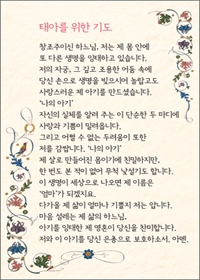 태아를 위한 기도
창조주이신 하느님, 저는 제 몸 안에
또 다른 생명을 잉태하고 있습니다.
저의 자궁, 그 깊고 조용한 어둠 속에
당신 손으로 생명을 빚으시며 놀랍고도
사랑스러운 제 아기를 만드셨습니다.
'나의 아기'
자신의 실체를 알려 주는 이 단순한 두 마디에
사랑과 기쁨이 밀려옵니다.
그리고 어쩔 수 없는 두려움이 또한
저를 감쌉니다. '나의 아기'
제 살로 만들어진 몸이기에 친밀하지만,
한 번도 본 적이 없어 무척 낯설기도 합니다.
이 생명이 세상으로 나오면 제 이름은
'엄마'가 되겠지요.
다가올 제 삶이 얼마나 기쁠지 저는 압니다.
마음 설레는 제 삶의 하느님,
아기를 잉태한 제 영혼이 당신을 찬미합니다.
저와 이 아기를 당신 은총으로 보호하소서, 아멘.